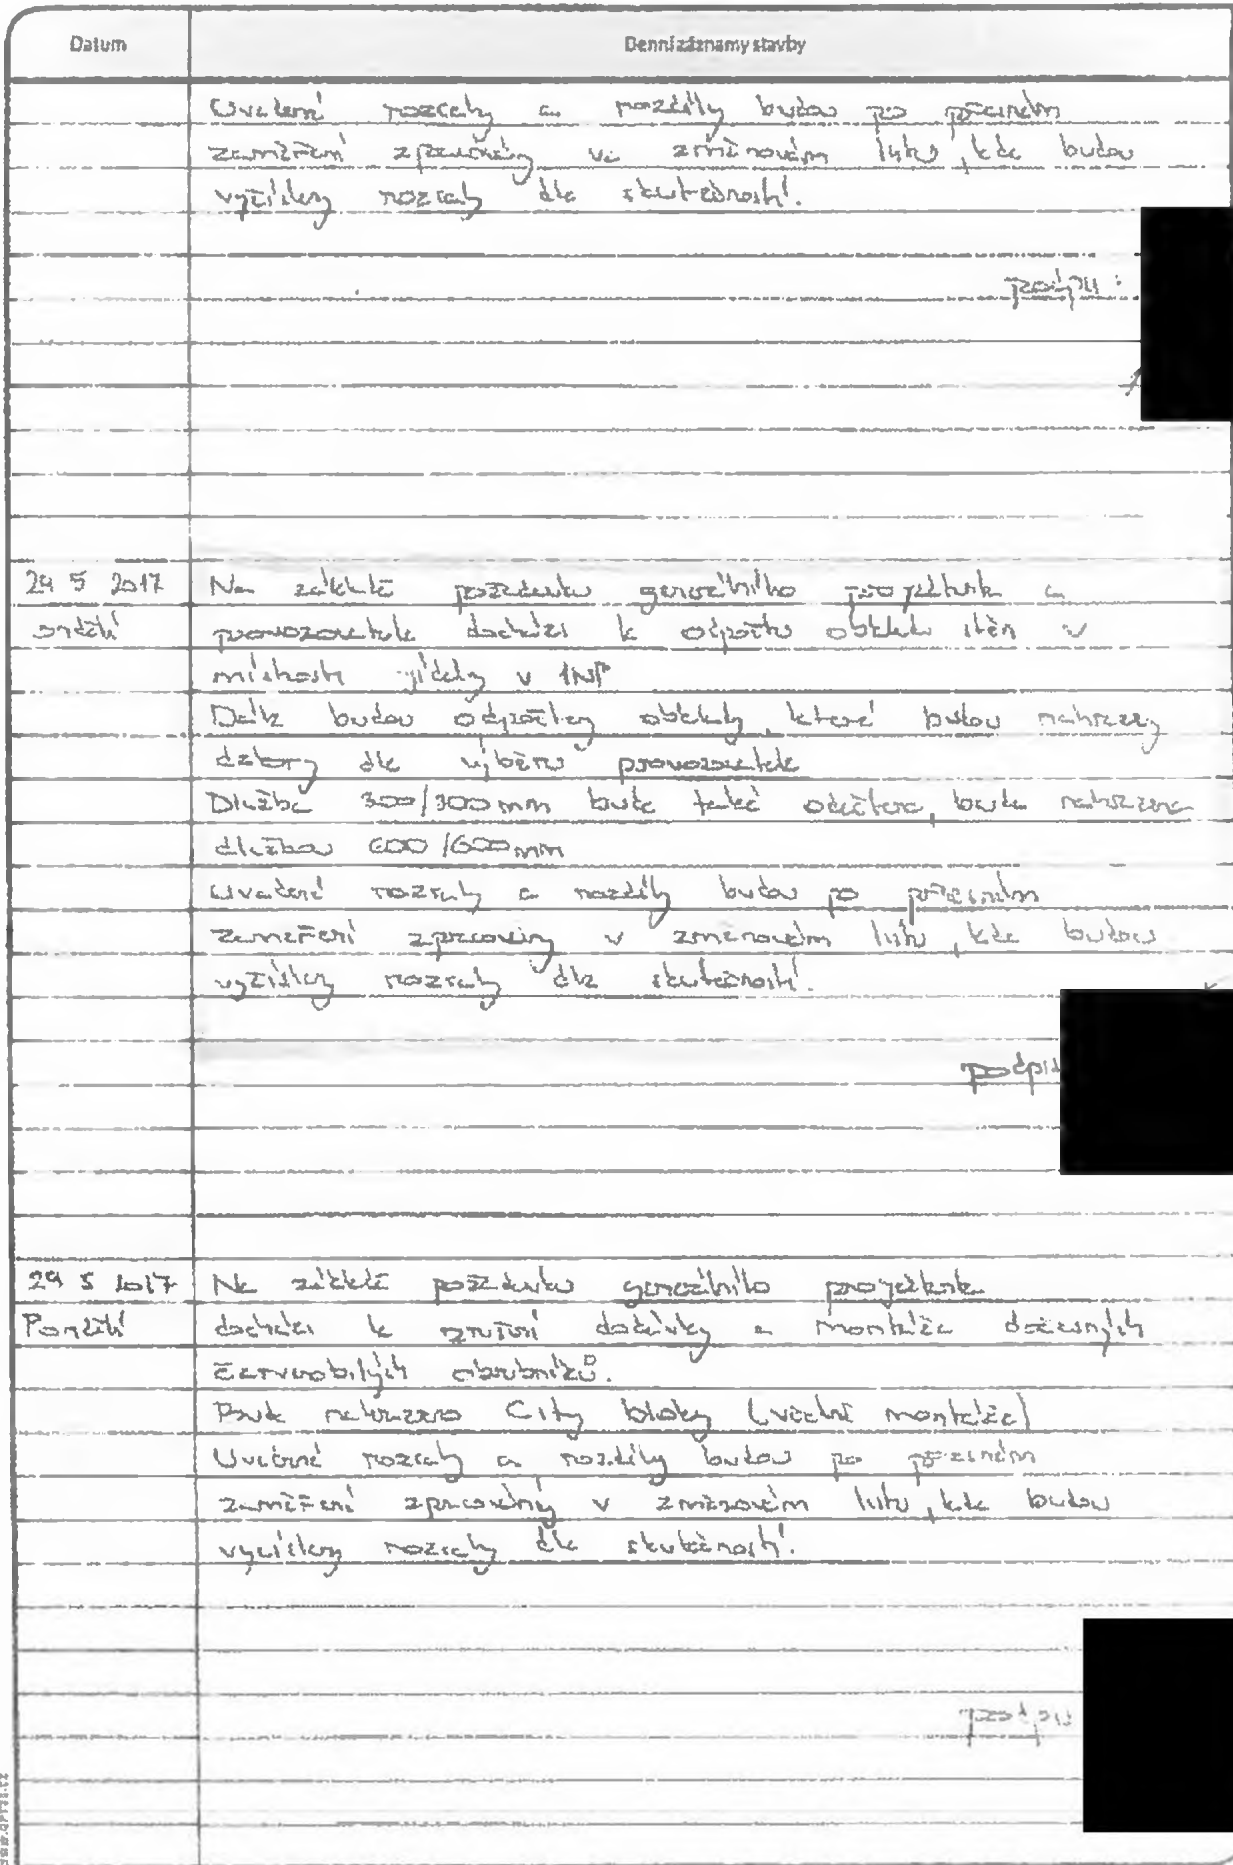 Datum Denní záznamy stavby
Uvedené rozsahy a rozdíly budou po přesném
zaměření zpracovány ve změnovém listu, kde budou
vyčísleny rozsahy dle skutečnosti.
podpis:
29 5 2017 Na základě požadavku generálního projektanta a
pondělí provozovatele dochází k odpočtu obkladu stěn v
místnosti jídelny v 1NP
Dále budou odpočteny obklady, které budou nahrazeny
dekory dle výběru provozovatele
Dlažba 300/300 mm bude také odečtena, bude nahrazena
dlažbou 600/600 mm
Uvedené rozsahy a rozdíly budou po přesném
zaměření zpracovány v změnovém listu, kde budou
vyčísleny rozsahy dle skutečnosti.
podpis
29 5 2017 Na základě požadavku generálního projektanta
Pondělí dochází k zrušení dodávky a montáže dočasných
červenobílých obrubníků.
Bude nahrazeno City bloky (včetně montáže)
Uvedené rozsahy a rozdíly budou po přesném
zaměření zpracovány v změnovém listu, kde budou
vyčísleny rozsahy dle skutečnosti.
podpis